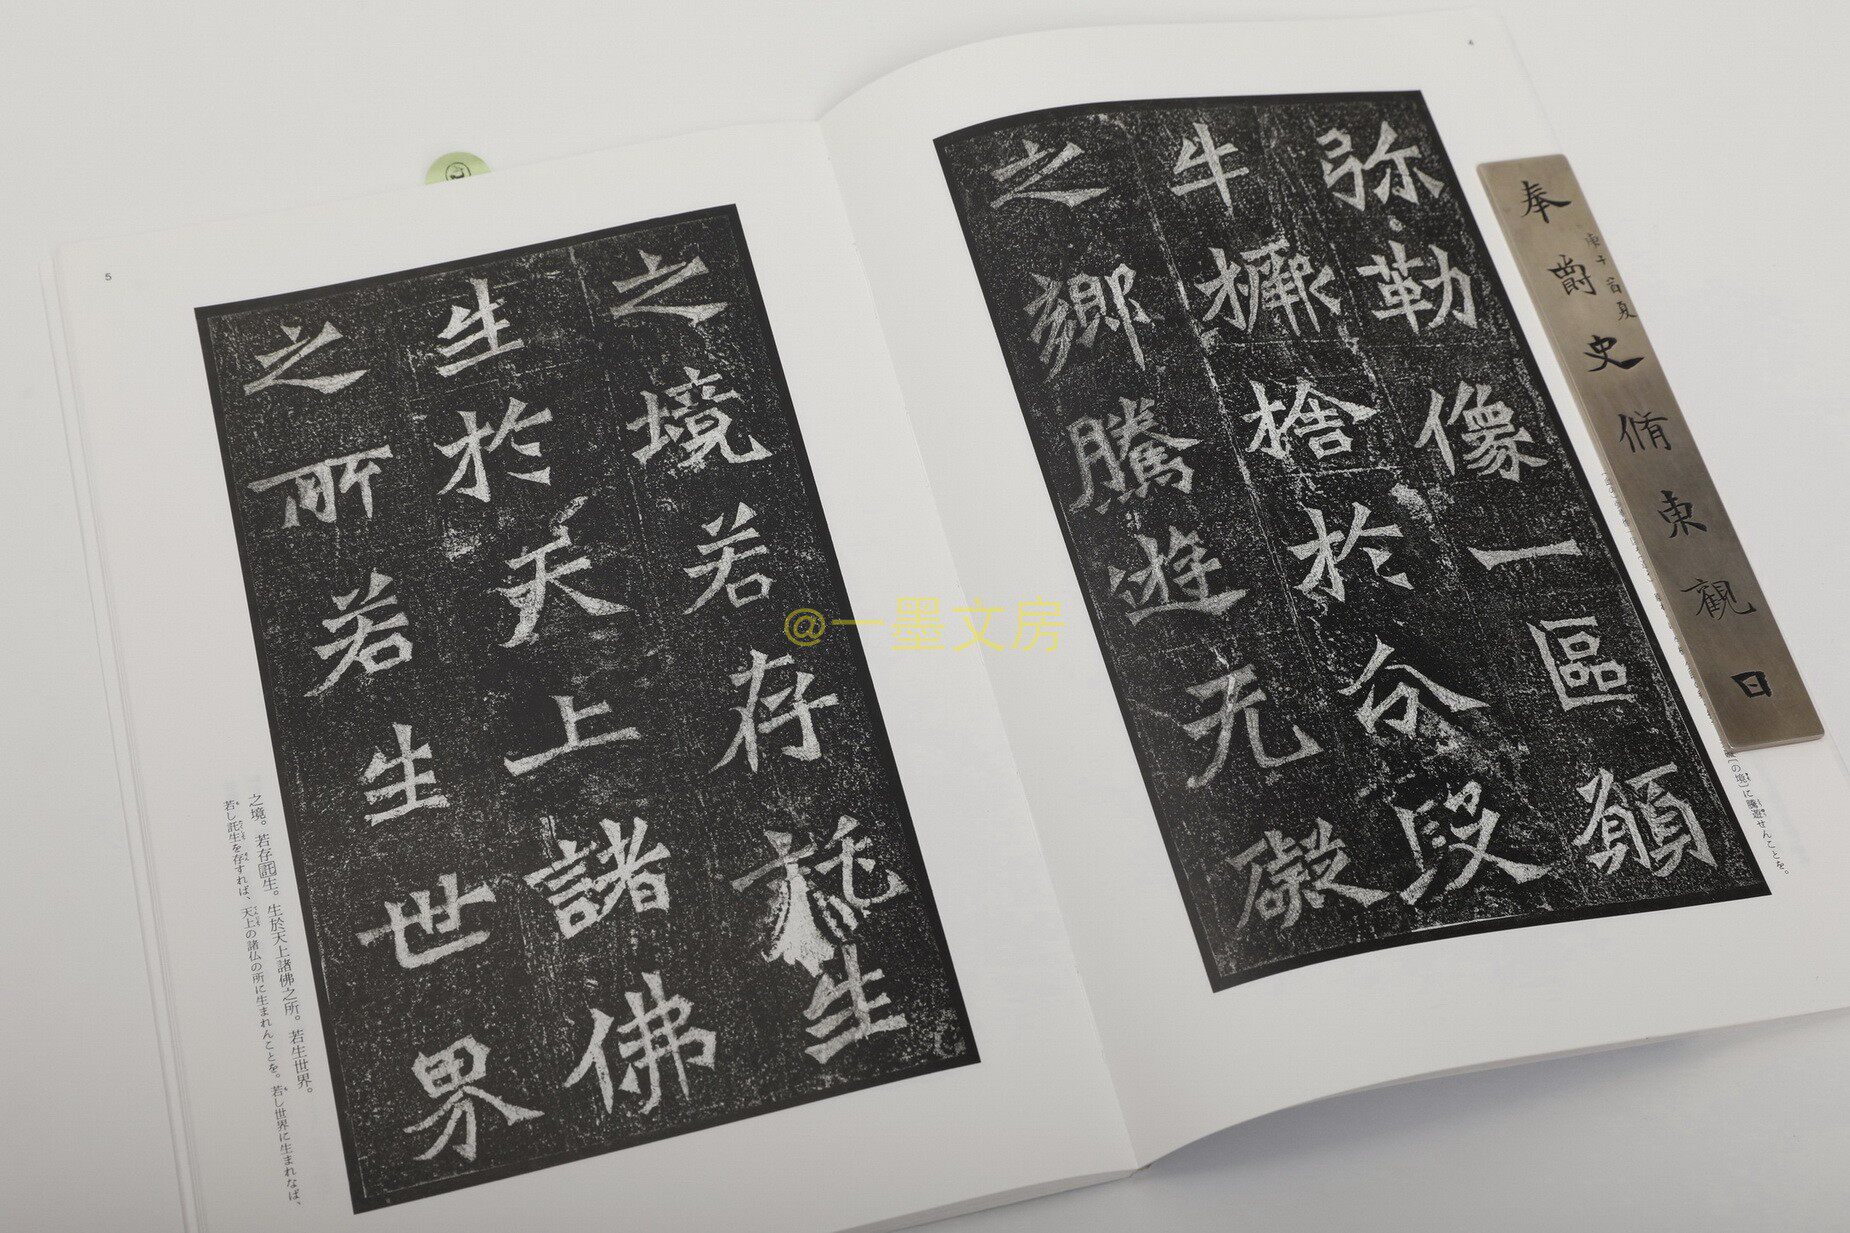 4
弥勒像一區願
牛橛捨於分段
之鄉騰遊无礙
〔の境〕に騰遊せんことを。
奉爵史脩東觀
庚子首夏
日
5
之境若存託生
生於天上諸佛
之所若生世界
之境。若存託生。生於天上諸佛之所。若生世界。
若し託生を存すれば、天上の諸仏の所に生まれんことを。若し世界に生まれなば、
@一墨文房